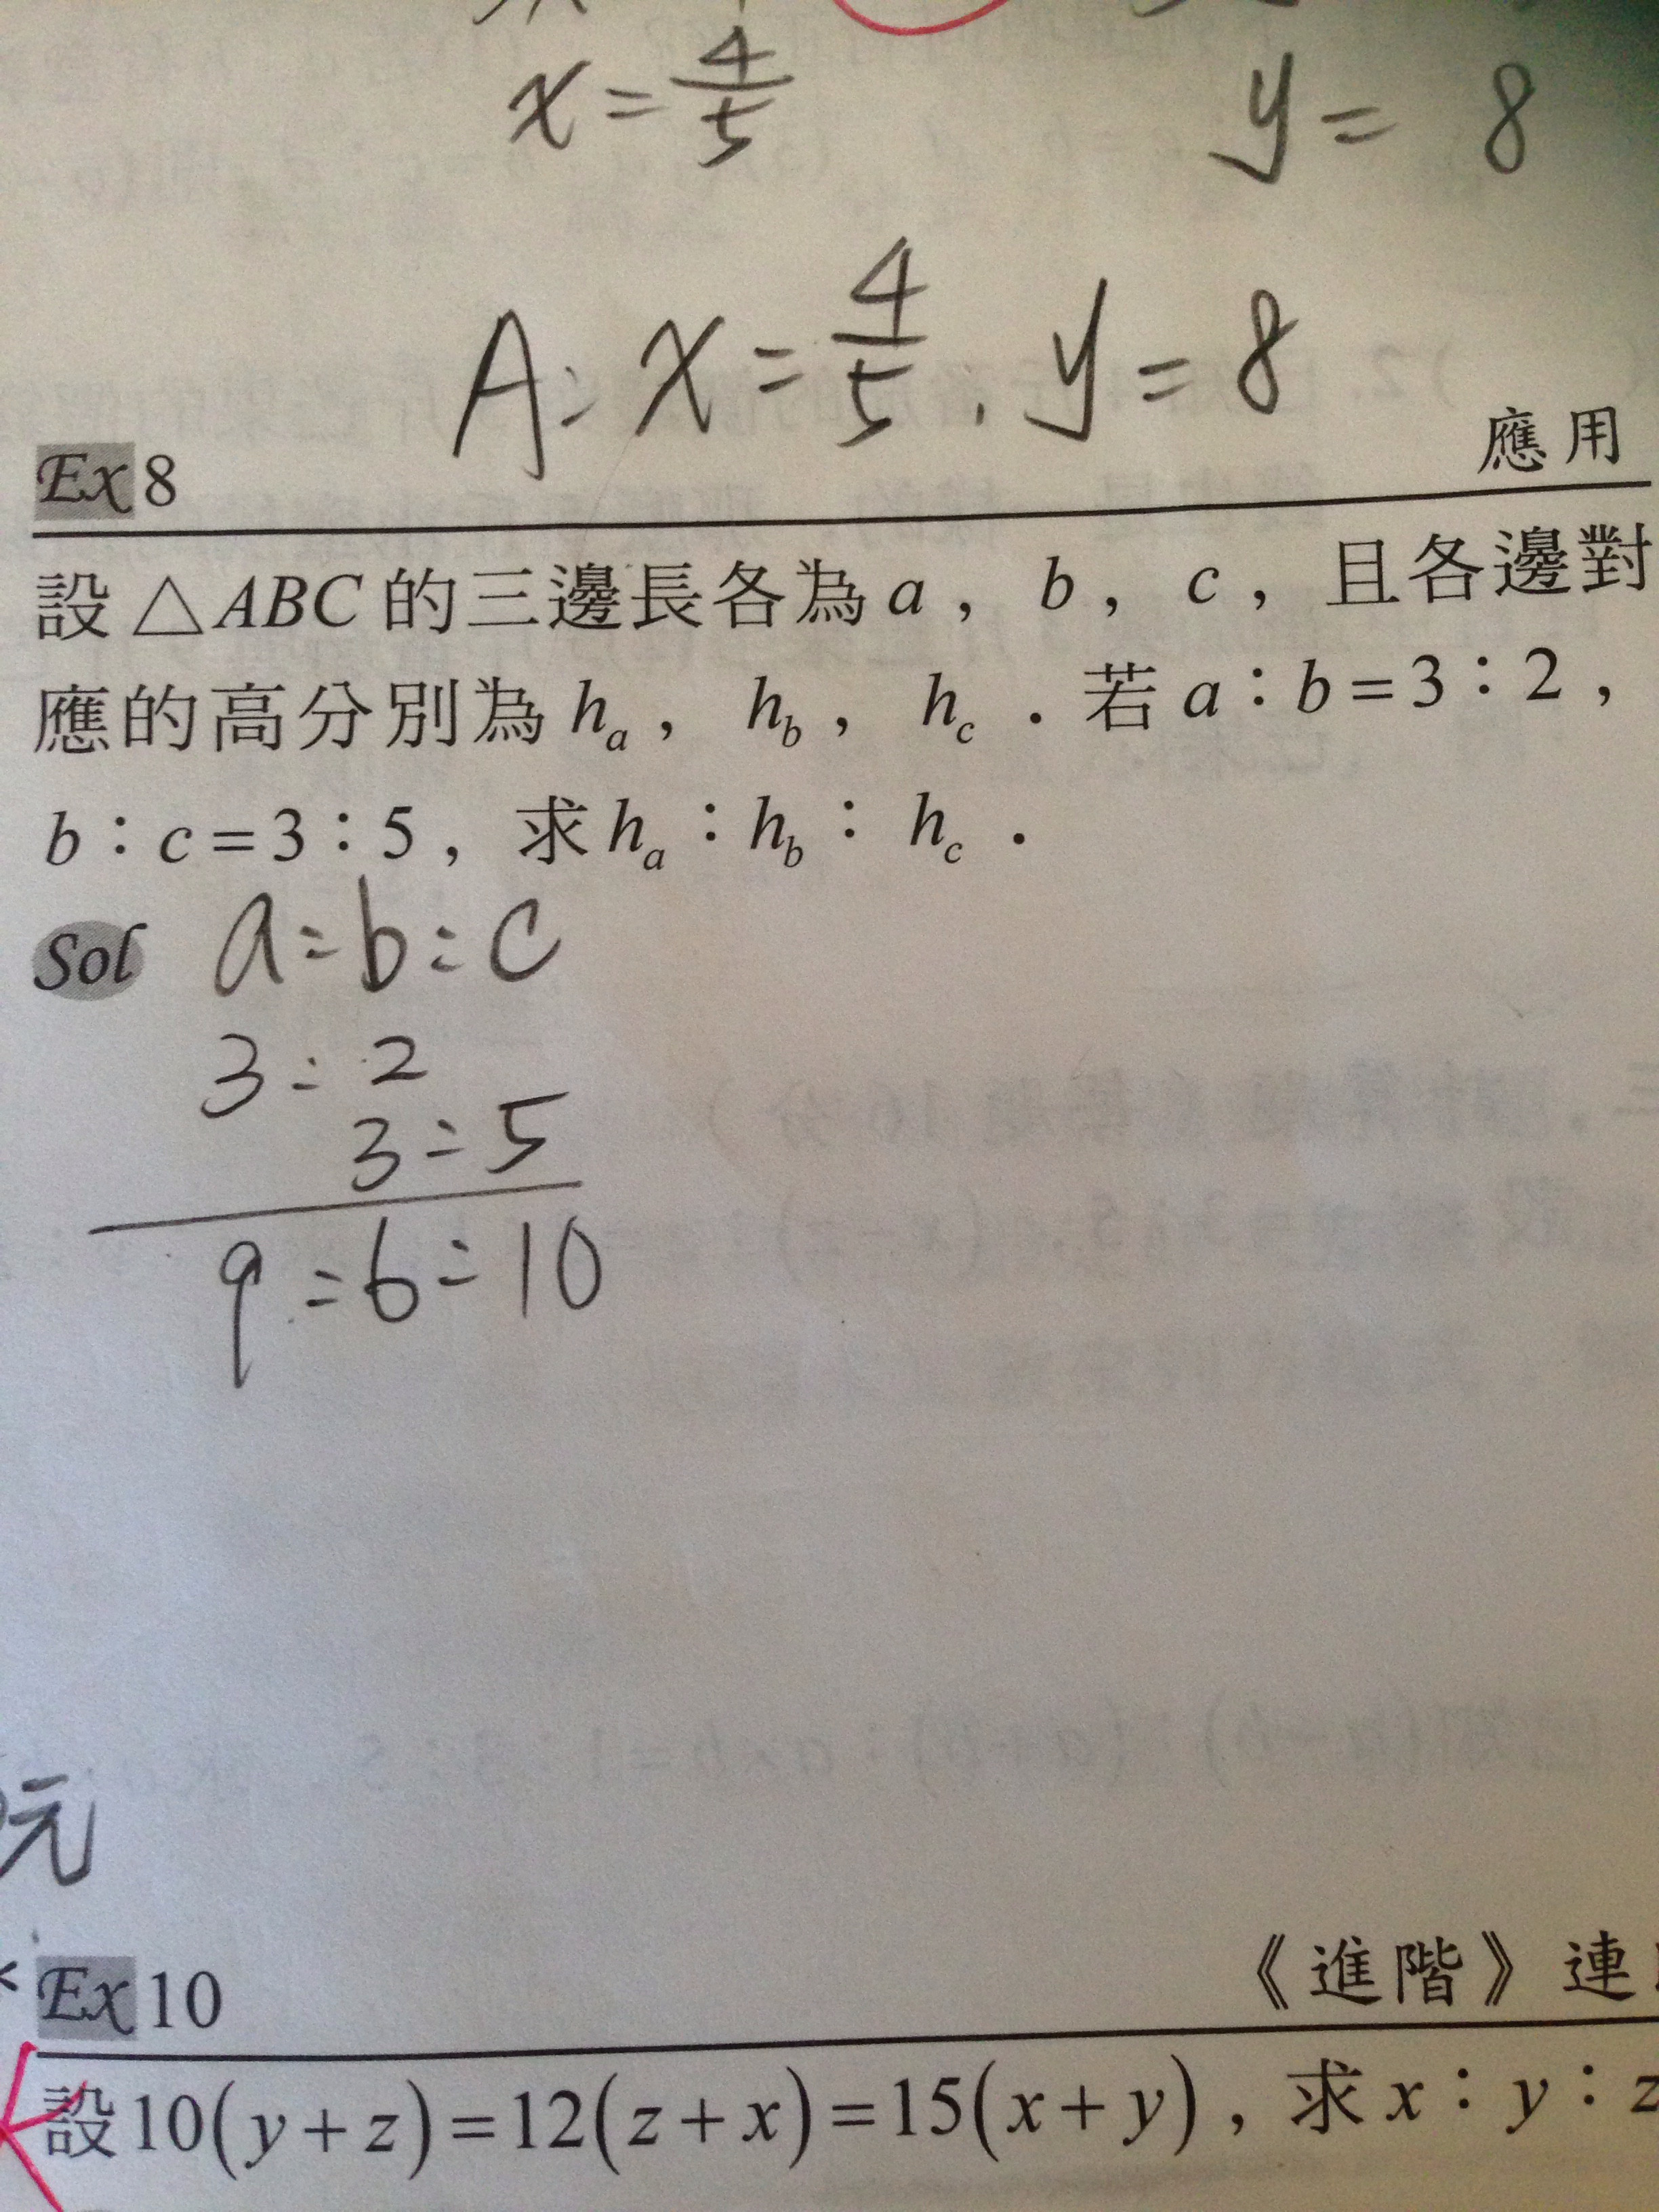 x = 4/5 y = 8
A: x = 4/5, y = 8
Ex 8 應用
設 △ABC 的三邊長各為 a, b, c, 且各邊對
應的高分別為 hₐ, h_b, h_c . 若 a : b = 3 : 2,
b : c = 3 : 5, 求 hₐ : h_b : h_c .
Sol a : b : c
3 : 2
3 : 5
9 : 6 : 10
元
Ex 10 《進階》連
設 10(y + z) = 12(z + x) = 15(x + y), 求 x : y : z